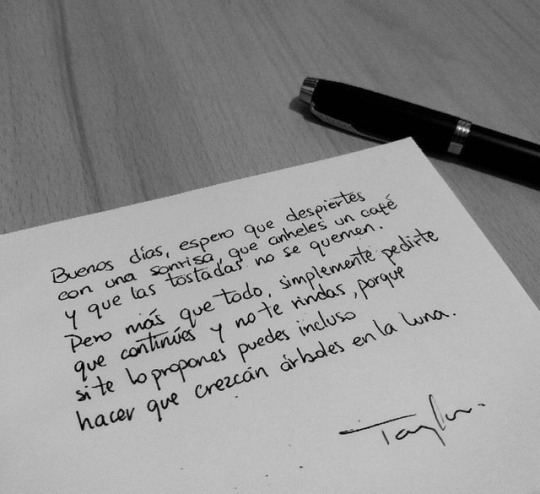 Buenos días, espero que despiertes
con una sonrisa, que anheles un café
y que las tostadas no se quemen.
Pero más que todo, simplemente pedirte
que continúes y no te rindas, porque
si te lo propones puedes incluso
hacer que crezcán árboles en la luna.
Taylor.